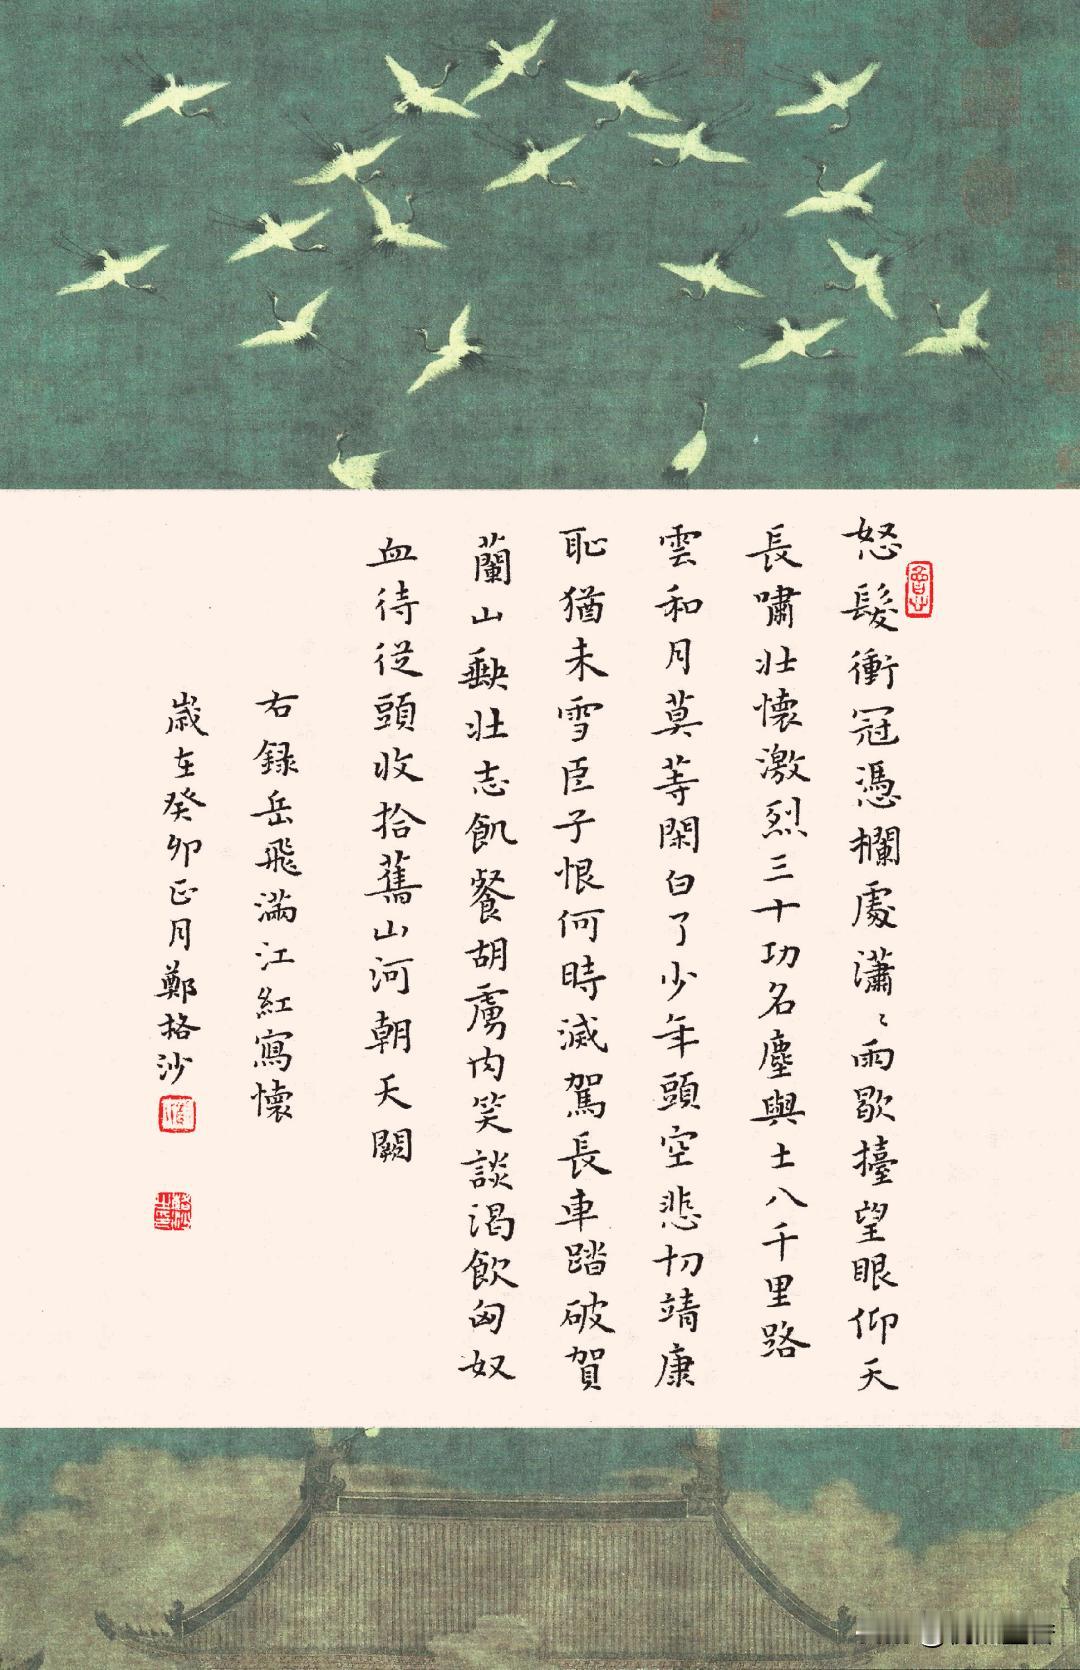 怒髮衝冠憑欄處瀟〻雨歇擡望眼仰天
長嘯壯懷激烈三十功名塵與土八千里路
雲和月莫等閑白了少年頭空悲切靖康
恥猶未雪臣子恨何時滅駕長車踏破賀
蘭山缺壯志飢餐胡虜肉笑談渴飲匈奴
血待從頭收拾舊山河朝天闕
右錄岳飛滿江紅寫懷
歲在癸卯正月鄭格沙